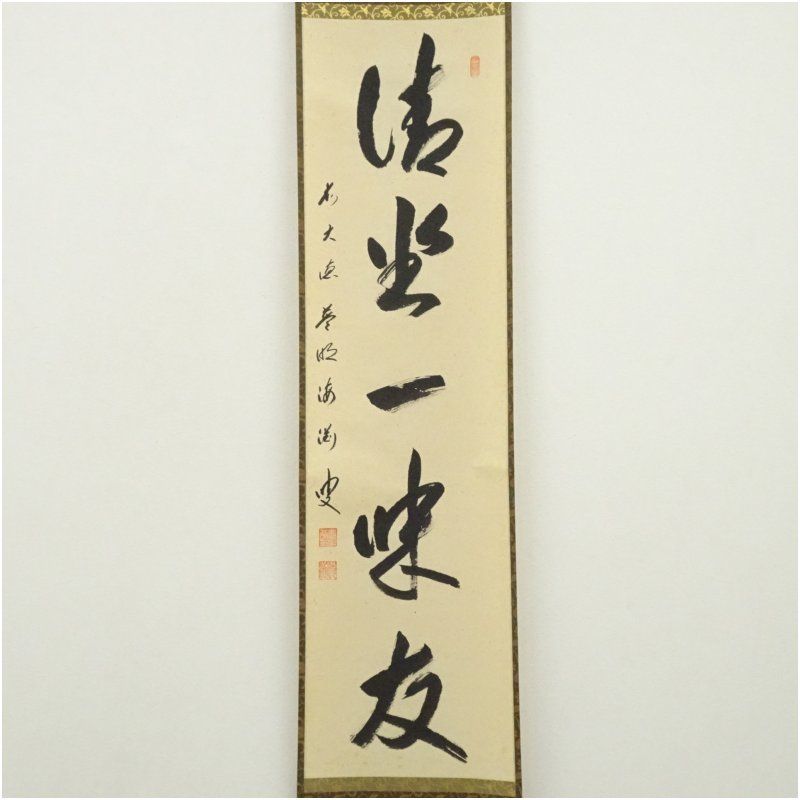 清坐一味友
前大徳 晴 海 叟